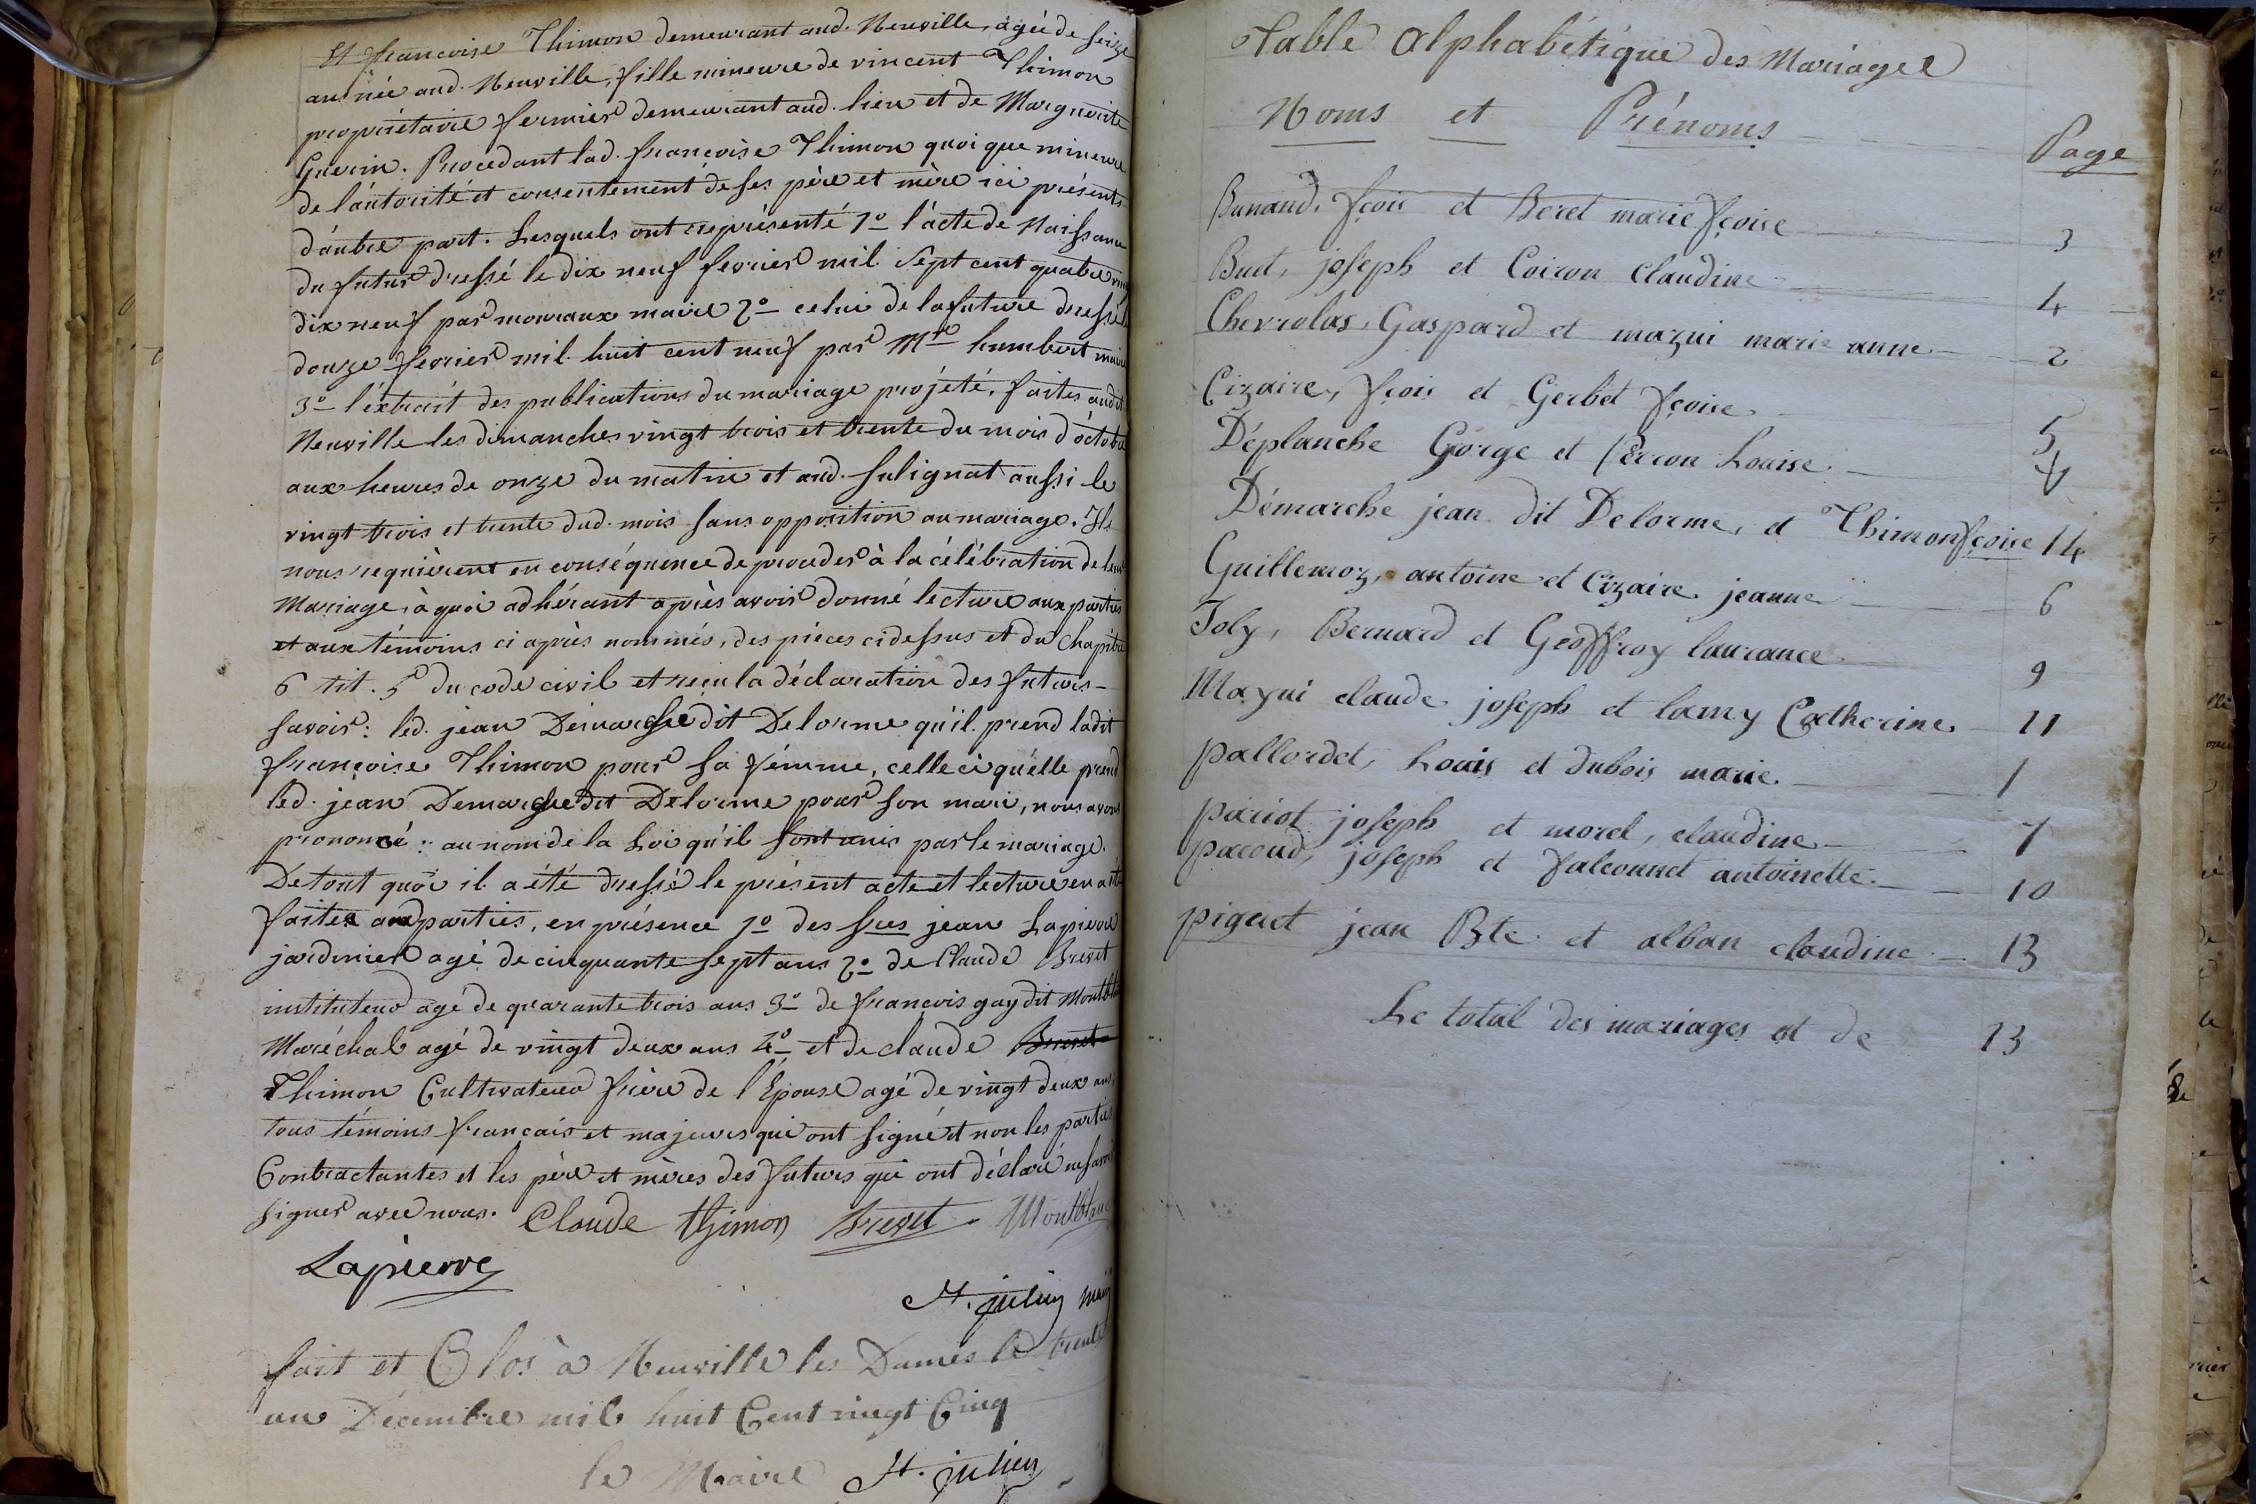 Et francoise Thimon demeurant aud. Neuville, agée de seize
ans née aud. Neuville, fille mineure de vincent Thimon
propriétaire fermier demeurant aud. lieu et de Marguerite
Guerin. Procedant lad. francoise Thimon quoi que mineure
de l'autorité et consentement de ses père et mère ici présents
d'autre part. Lesquels ont représenté 1º l'acte de Naissance
du futur dressé le dix neuf fevrier mil sept cent quatre vingt
dix neuf par moreaux maire 2º celui de la future dressé le
douze fevrier mil huit cent neuf par Mre humbert maire
3º l'extrait des publications du mariage projété, faites audit
Neuville les dimanches vingt trois et trente du mois d'octobre
aux heures de onze du matin et aud. sulignat aussi le
vingt trois et trente dud. mois sans opposition au mariage. Ils
nous requièrent en conséquence de proceder à la célébration de leur
Mariage, à quoi adhérant après avoir donné lecture aux parties
et aux témoins ci après nommés, des pièces ci dessus et du chapitre
6 tit. 5 du code civil et recu la déclaration des futurs
savoir: led. jean Demarche dit Delorme qu'il prend ladit
françoise Thimon pour sa fémme, celle ci qu'elle prend
led. jean Demarche dit Delorme pour son mari, nous avons
prononcé: au nom de la Loi qu'il sont unis par le mariage.
De tout quoi il a été dressé le présent acte et lecture en a été
faites aux parties, en présence 1º des srs jean Lapierre
jardinier agé de cinquante sept ans 2º de Claude Brevet
instituteur agé de quarante trois ans 3º de francois gay dit Montblanc
Maréchal agé de vingt deux ans 4º et de claude Brevet
Thimon Cultivateur frère de l'Epouse agé de vingt deux ans,
tous témoins francais et majeurs qui ont signé et non les parties
Contractantes et les père et mères des futurs qui ont déclaré ne savoir
signer avec nous. Claude thimon Brevet Montblanc
Lapierre
St. julien maire
fait et Clos à Neuville les Dames le trente
un Décembre mil huit Cent vingt Cinq
le Maire St. julien
Table Alphabétique des Mariages
Noms et Prénoms Page
Bunand, fçois et Beret marie fçoise 3
Buet, joseph et Coiron Claudine 4
Chevrolas, Gaspard et mazui marie anne 2
Cizaire, fçois et Gerbet fçoise 5
Déplanche Gorge et Perron Louise
Démarche jean dit Delorme, et Thimon fçoise 14
Guillemoz, antoine et Cizaire jeanne 6
Joly, Bernard et Geoffroy laurance 9
Mazui claude joseph et lamy Catherine 11
pallordet, Louis et dubois marie 1
pariot joseph et morel, claudine 7
pacoud, joseph et falconnet antoinette 10
piguet jean Bte et alban claudine 13
Le total des mariages et de 13